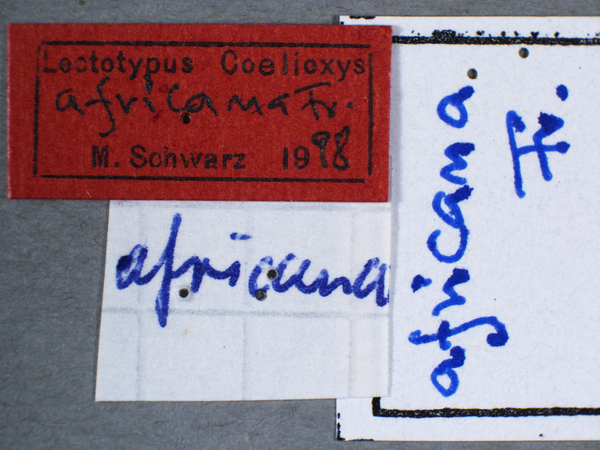 Lectotypus Coelioxys
africana Fr.
M. Schwarz 1998
africana
africana
Fr.